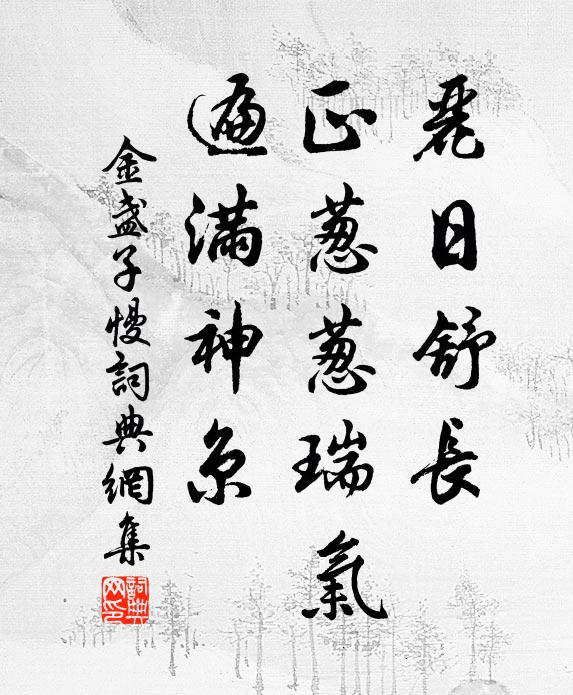 麗日舒長
正葱葱瑞氣
遍滿神京
金盏子慢詞典網集
詞典網印